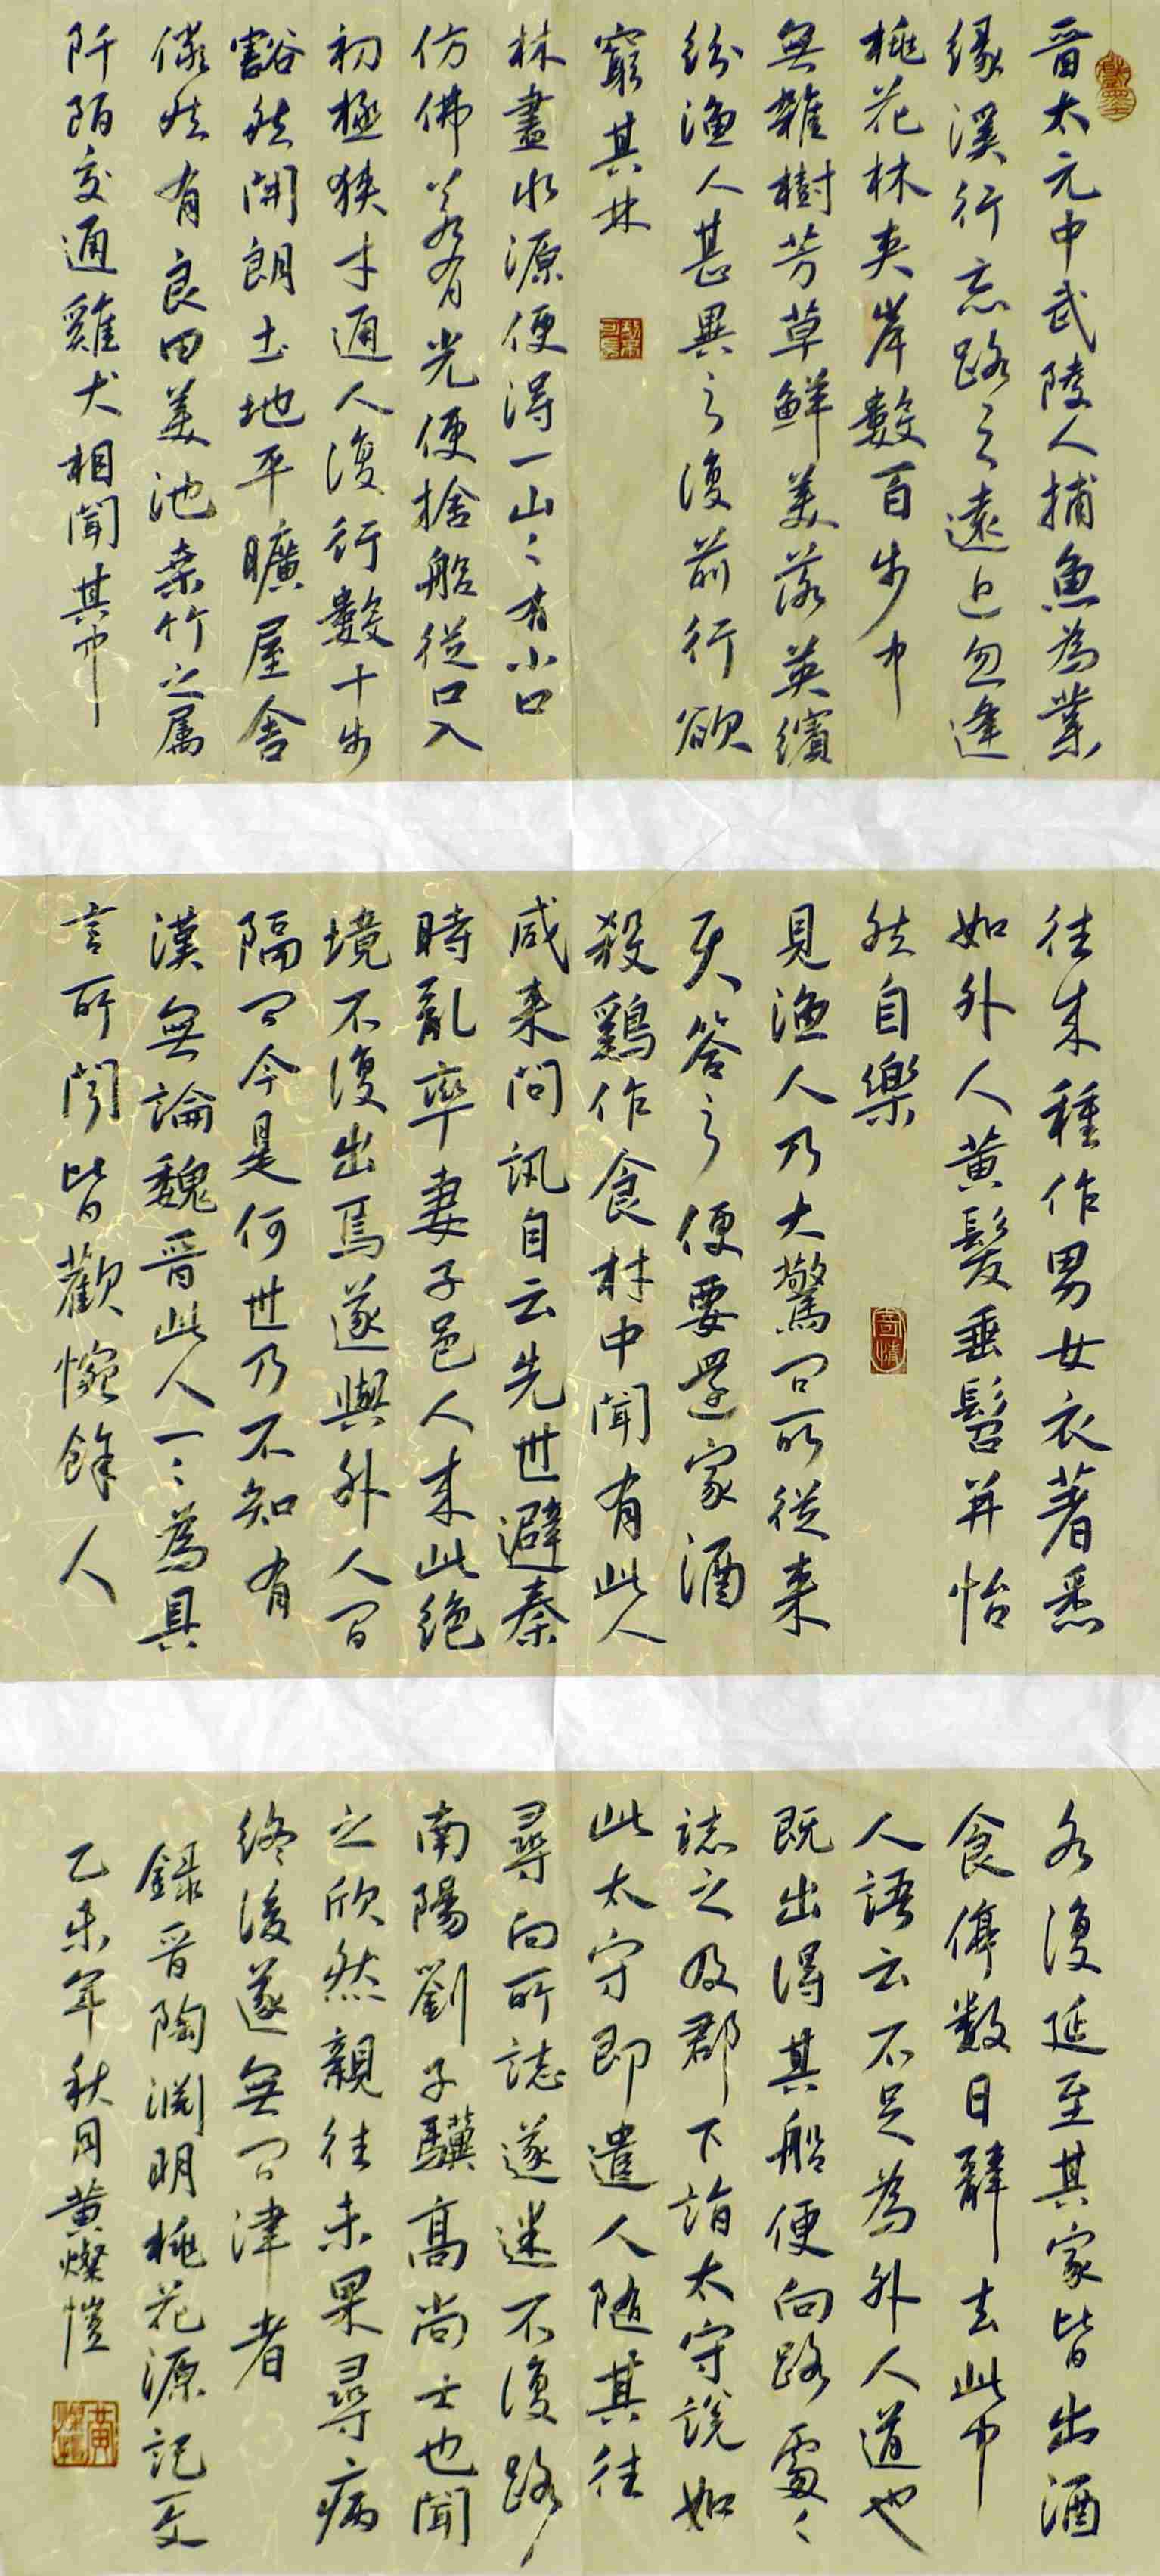 晋太元中武陵人捕魚為業
缘溪行忘路之遠近忽逢
桃花林夹岸數百步中
無雜樹芳草鲜美落英繽
纷渔人甚異之復前行欲
窮其林
林盡水源便得一山〻有小口
仿佛若有光便捨船從口入
初極狹才通人復行數十步
豁然開朗土地平曠屋舍
儼然有良田美池桑竹之属
阡陌交通雞犬相聞其中
往来種作男女衣著悉
如外人黄髮垂髫并怡
然自樂
見渔人乃大驚问所從来
具答之便要還家酒
殺鷄作食村中聞有此人
咸来问訊自云先世避秦
時亂率妻子邑人来此绝
境不復出焉遂與外人间
隔问今是何世乃不知有
漢無論魏晋此人一〻為具
言所闻皆歡惋餘人
各復延至其家皆出酒
食停数日辭去此中
人語云不足為外人道也
既出得其船便向路處〻
誌之及郡下詣太守說如
此太守即遣人随其往
尋向所誌遂迷不復路
南陽劉子驥高尚士也聞
之欣然親往未果尋病
终後遂無问津者
録晋陶渊明桃花源記文
乙未年秋月黄燦愷
奇情